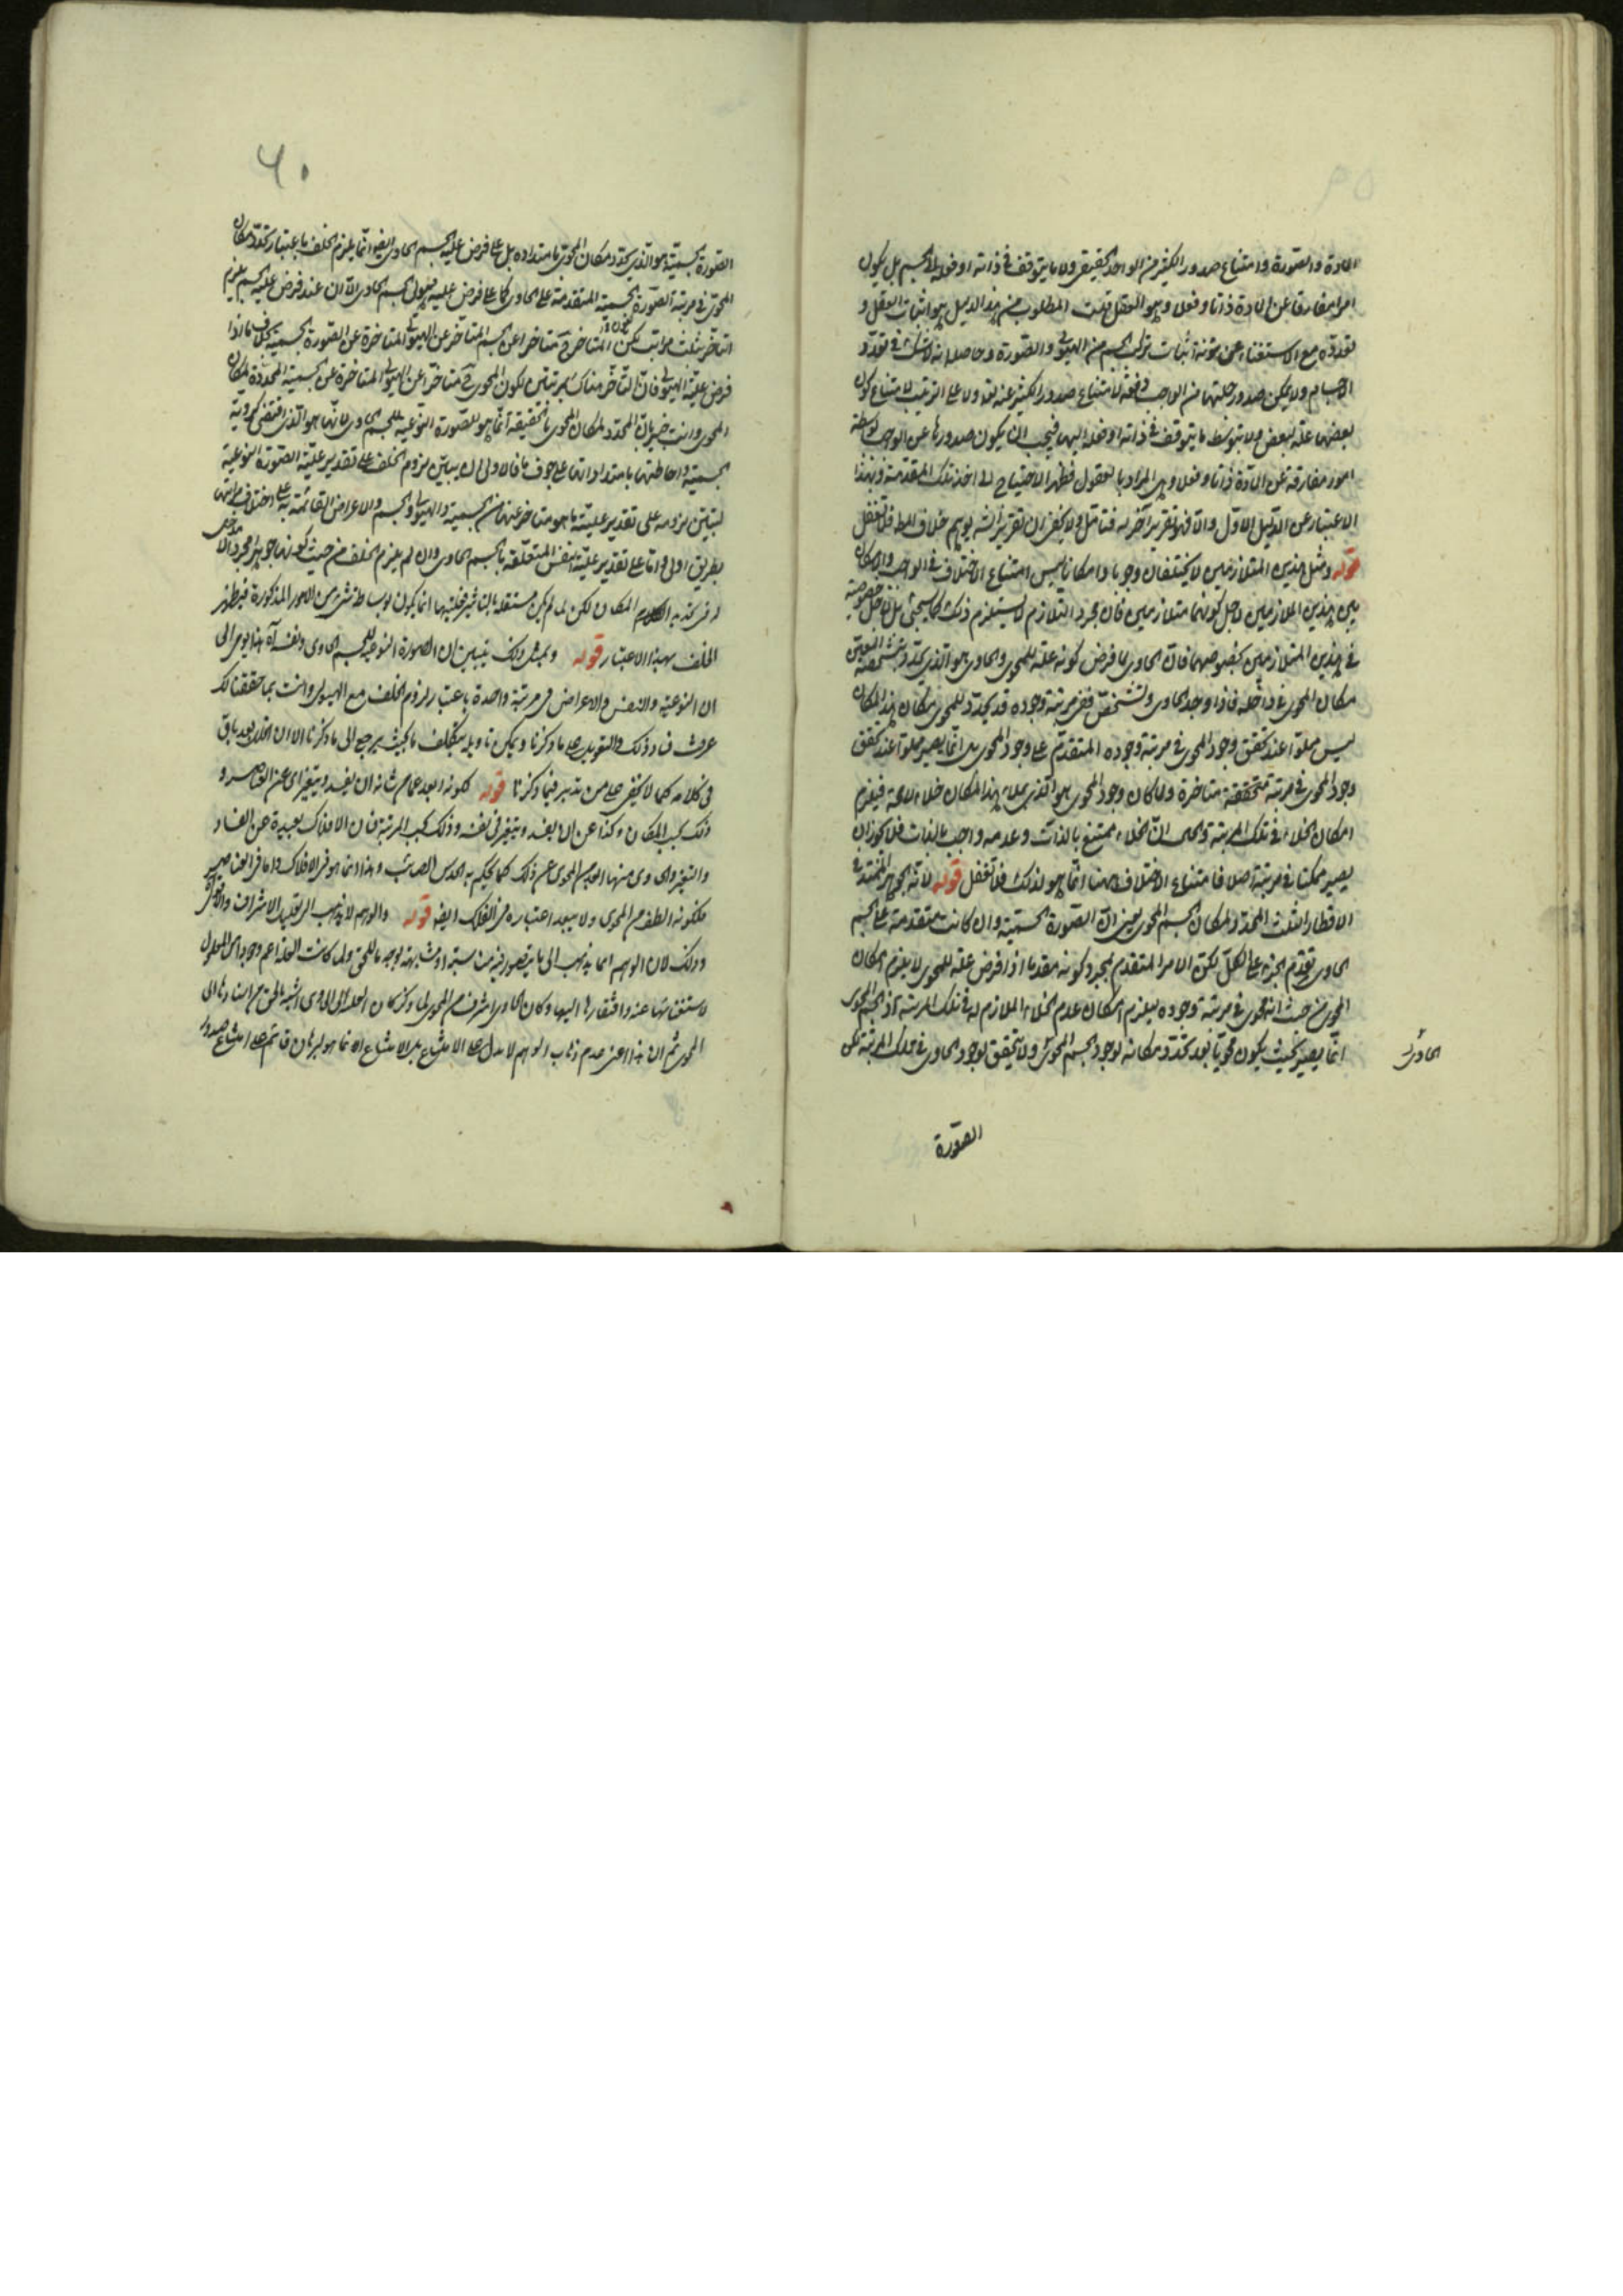 المادة والصورة وامتناع صدور الكثير من الواحد الحقيقي ولا ما يتوقف في ذاته او فعله على الجسم بل يكون
امرا مفارقا عن المادة ذاتا وفعلا وهو العقل قلت المطلوب من هذا الدليل هو اثبات العقل و
تعدده مع الاستغناء عن مؤنة اثبات تركب الجسم من الهيولى والصورة وحاصله انه لا شك في تعدد
الاجسام ولا يمكن صدور جملتها من الواجب دفعة لامتناع صدور الكثير عنه تعه ولا على الترتيب لامتناع كون
بعضها علة لبعض ولا بتوسط ما يتوقف في ذاته او فعله اليها فيجب ان يكون صدورها عن الواجب بواسطة
امور مفارقة عن المادة ذاتا وفعلا وهي المراد بالعقول فظهر الاحتياج الى اخذ تلك المقدمة وبهذا
الاعتبار عن الدليل الاول والا فهو تقرير آخر له فتأمل ولا يخفى ان تقرير الشه يوهم خلاف المط فلا تغفل
قوله ومثل هذين المتلازمين لا يختلفان وجوبا وامكانا ليس امتناع الاختلاف في الوجوب والامكان
بين هذين المتلازمين لاجل كونهما متلازمين فان مجرد التلازم لا يستلزم ذلك كما سيجئ بل لاجل خصوصية
في هذين المتلازمين بخصوصهما فان الحاوي لما فرض كونه علة للمحوي والحاوي هو الذي يحدد بتشخصه المعين
مكان المحوي في داخله فاذا وجد الحاوي وتشخص ففي مرتبة وجوده قد تحدد للمحوي مكان هذا المكان
ليس مملوا عند تحقق وجود المحوي في مرتبة وجوده المتقدم على وجود المحوي بل انما يصير مملوا عند تحقق
وجود المحوي في مرتبة متحققة متاخرة ولما كان وجود المحوي هو الذي يملاء هذا المكان خلاء لا محة فيلزم
امكان الخلاء في تلك المرتبة والحال ان الخلاء ممتنع بالذات وعدمه واجب بالذات فلا يجوز ان
يصير ممكنا في مرتبة اصلا فامتناع الاختلاف ههنا انما هو لذلك فلا تغفل قوله لانه الجوهر الممتد في
الاقطار الثلث المحدد لمكان الجسم المحوي يعني ان الصورة الجسمية وان كانت متقدمة على الجسم
الحاوي تقدم الجزء على الكل لكن الامر المتقدم لمجرد كونه متقدما اذا فرض علة للمحوي لا يلزم امكان
المحوي من حيث انه محوي في مرتبة وجوده فيلزم امكان عدم الخلاء الملازم له في تلك المرتبة اذ الجسم المحوي
انما يصير بحيث يكون محويا بعد تحدد مكانه لوجود الجسم المحوي ولا تحقق لوجود الحاوي في تلك المرتبة لكن
الحاوي
الصورة
٦٠
الصورة الجسمية هو الذي يحدد مكان المحوي بامتداده بل على فرض علية الجسم الحاوي ايضا انما يلزم الخلف باعتبار تحدد مكان
المحوي في مرتبة الصورة الجسمية المتقدمة على الحاوي كما على فرض علية هيولى الجسم الحاوي الا ان عند فرض علية الجسم يلزم
التاخر بثلث مراتب لكون المتاخر متاخرا عن الجسم المتاخر عن الهيولى المتاخرة عن الصورة الجسمية بخلاف ما اذا
فرض علية الهيولى فان التاخر هناك بمرتبتين لكون المحوي ح متاخرا عن الهيولى المتاخرة عن الجسمية المحددة لمكان
المحوي وانت خبير بان المحدد لمكان المحوي بالحقيقة انما هو للصورة النوعية للجسم الحاوي لانها هو الذي اقتضى كروية
الجسمية واحاطتها بامتداداتها على جوف ما فالاولى ان يبين لزوم الخلف على تقدير علية الصورة النوعية
ليتبين لزومه على تقدير علية ما هو متاخر عنها من الجسمية والهيولى والجسم والاعراض القائمة به على اختلاف مراتبها
بطريق اولى واما على تقدير علية النفس المتعلقة بالجسم الحاوي وان لم يلزم الخلف من حيث كونها جوهرا مجردا لا مدخل
له في تحديد المكان لكن لما لم يكن مستقلة بالتاثير فعليتها انما يكون بوساطة شئ من الامور المذكورة فيظهر
الخلف بهذا الاعتبار قوله وبمثل ذلك يتبين ان الصورة النوعية للجسم الحاوي ونفسه آه هذا يومئ الى
ان النوعية والنفس والاعراض في مرتبة واحدة باعتبار لزوم الخلف مع الهيولى وانت بما حققنا لك
عرفت فساد ذلك والتعويل على ما ذكرنا ويمكن تاويله بتكلف ما بحيث يرجع الى ما ذكرنا الا ان الخلل بعد باق
في كلامه كما لا يخفى على من تدبر فيما ذكرنا قوله لكونه ابعد عما من شانه ان يفسد ويتغير اي عن العناصر و
ذلك بحسب المكان وكذا عن ان يفسد ويتغير في نفسه وذلك بحسب المرتبة فان الافلاك بعيدة عن الفساد
والتغير والحاوي منها ابعد من المحوي عن ذلك كما يحكم به الحدس الصائب وهذا انما هو في الافلاك واما في العناصر
فلكونه الطف من المحوي ولا يبعد اعتباره في الفلك ايضا قوله والوهم لا يذهب الى تعليل الاشرف والاقوى
وذلك لان الوهم انما يذهب الى ما يتصور فيه مناسبة او مشابهة بوجه ما للحق ولما كانت العلة اعم وجودا من المعلول
لاستغنائها عنه وافتقاره اليها وكان الحاوي اشرف من المحوي لما ذكر كان اسناد العلة الى الحاوي اشبه بالحق من اسنادها الى
المحوي ثم ان هذا اعني عدم ذهاب الوهم لا يدل على الامتناع بل الامتناع انما هو لبرهان قائم على امتناع صدور